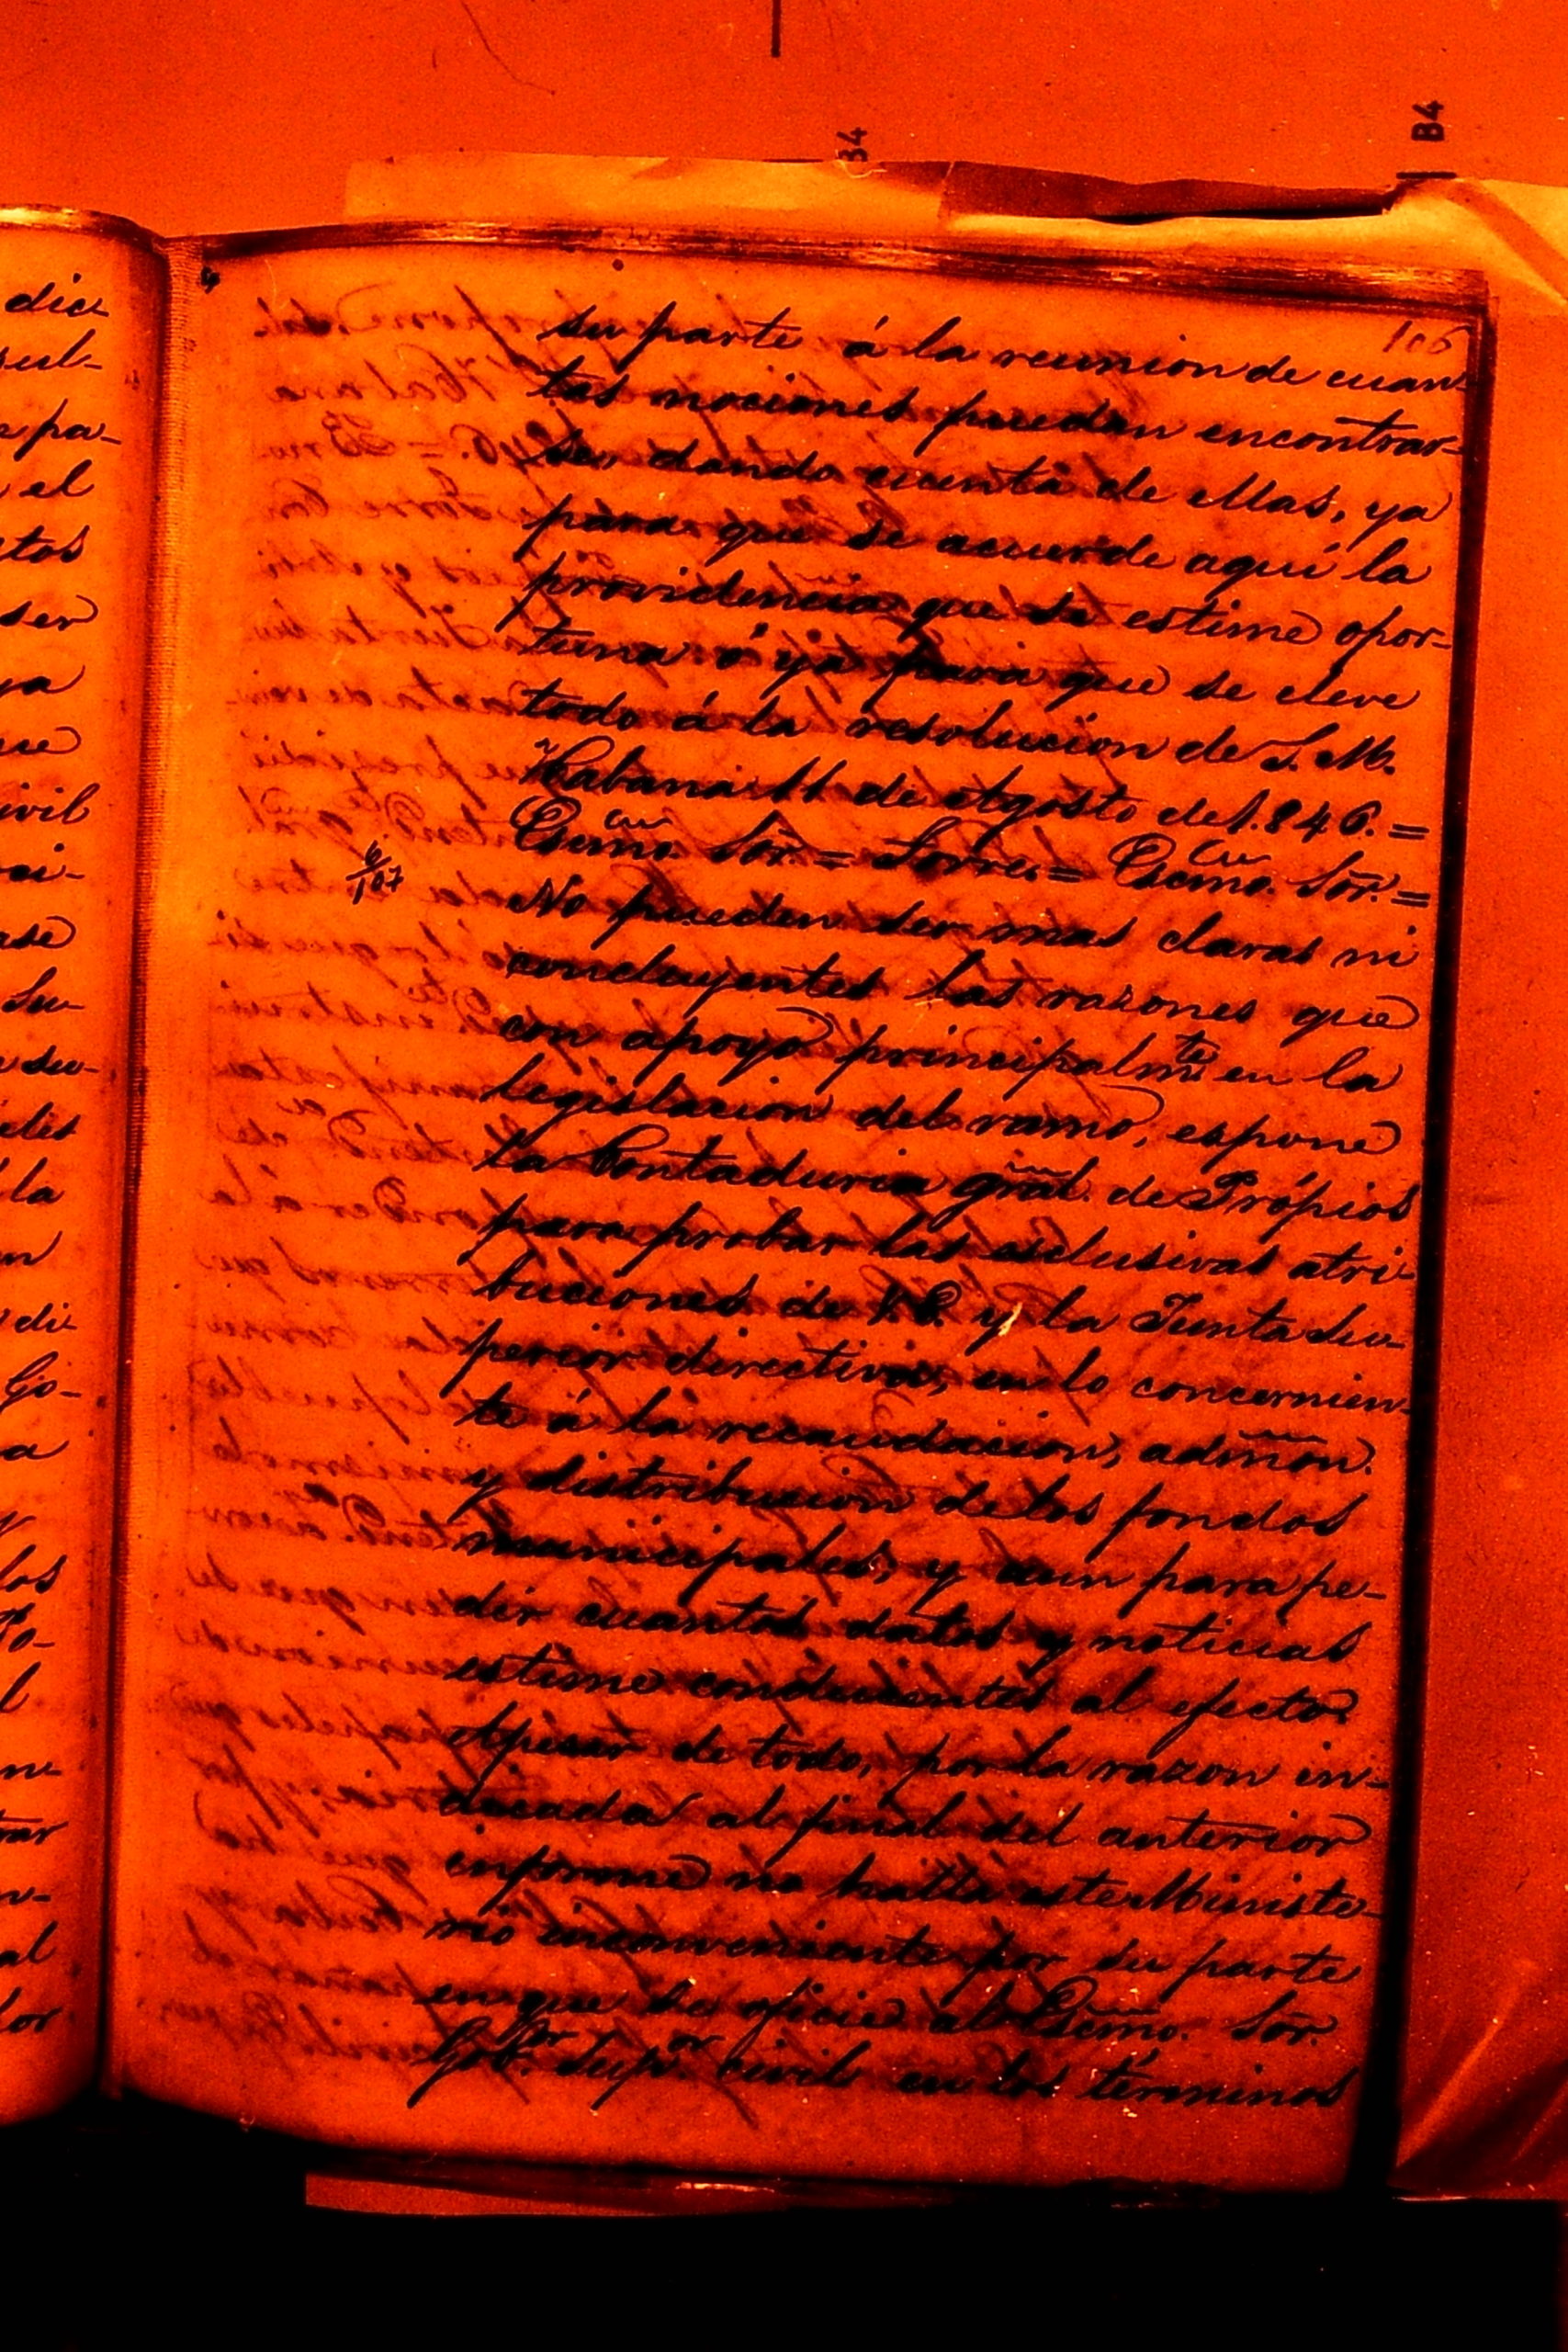 B4
B4
106
su parte á la reunion de cuan-
tas nociones puedan encontrar-
se, dando cuenta de ellas, ya
para que se acuerde aquí la
providencia que se estime opor-
tuna ó ya para que se eleve
todo á la resolucion de S. M.
Habana 11 de Agosto de 1.846. =
Escmo. Sōr. = Torre. = Escmo. Sōr. =
6/107
No pueden ser mas claras ni
concluyentes las razones que
con apoyo principalmte en la
legislacion del ramo, espone
la Contaduria gral. de Própios
para probar las esclusivas atri-
buciones de V.E. y la Junta Su-
perior directiva, en lo concernien-
te á la recaudacion, admōn.
y distribucion de los fondos
municipales, y aun para pe-
dir cuantos datos y noticias
estime conducentes al efecto.
Apesar de todo, por la razon in-
dicada al final del anterior
informe no halla este Ministe-
rio inconveniente por su parte
en que se oficie al Escmo. Sōr.
Gobor. Supor. civil en los términos
dic
sul-
pa-
el
ctos
ser
ya
ue
civil
ci-
ase
Su-
su-
la
di
Go-
a
los
l
rar
al
dor